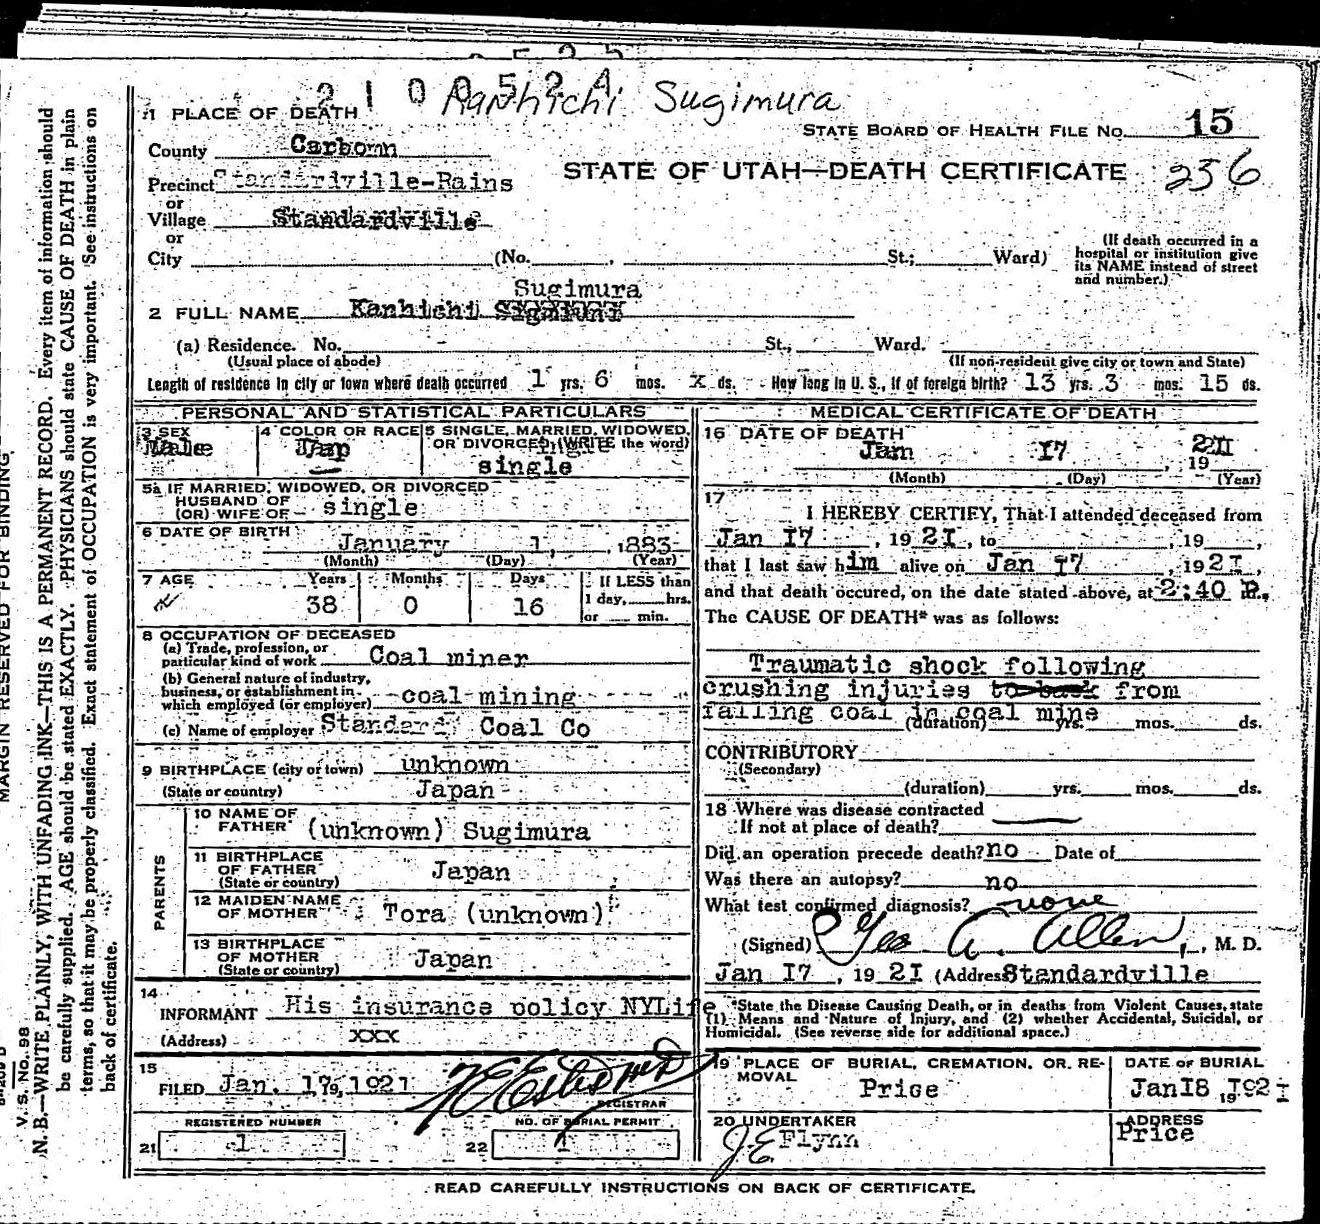 210052A
Kanhichi Sugimura
1 PLACE OF DEATH
STATE BOARD OF HEALTH FILE No. 15
County Carbonn
STATE OF UTAH—DEATH CERTIFICATE 256
Precinct Standardville-Rains
or
Village Standardville
or
City (No. , St.; Ward)
(If death occurred in a hospital or institution give its NAME instead of street and number.)
Sugimura
2 FULL NAME Kanhichi
(a) Residence. No. St., Ward.
(Usual place of abode) (If non-resident give city or town and State)
Length of residence in city or town where death occurred 1 yrs. 6 mos. x ds. How long in U. S., if of foreign birth? 13 yrs. 3 mos. 15 ds.
PERSONAL AND STATISTICAL PARTICULARS
3 SEX
Male
4 COLOR OR RACE
Jap
5 SINGLE, MARRIED, WIDOWED, OR DIVORCED, (WRITE the word)
single
5a IF MARRIED, WIDOWED, OR DIVORCED
HUSBAND OF
(OR) WIFE OF single
6 DATE OF BIRTH
January 1, 1883
(Month) (Day) (Year)
7 AGE Years Months Days If LESS than
38 0 16 1 day, hrs.
or min.
8 OCCUPATION OF DECEASED
(a) Trade, profession, or
particular kind of work Coal miner
(b) General nature of industry,
business, or establishment in
which employed (or employer) coal mining
(c) Name of employer Standard Coal Co
9 BIRTHPLACE (city or town) unknown
(State or country) Japan
PARENTS
10 NAME OF
FATHER (unknown) Sugimura
11 BIRTHPLACE
OF FATHER
(State or country) Japan
12 MAIDEN NAME
OF MOTHER Tora (unknown)
13 BIRTHPLACE
OF MOTHER
(State or country) Japan
14
INFORMANT His insurance policy NYLife
(Address) xxx
15
FILED Jan. 17, 1921
REGISTRAR
REGISTERED NUMBER NO. OF BURIAL PERMIT
21 1 22 1
MEDICAL CERTIFICATE OF DEATH
16 DATE OF DEATH
Jan 17 , 19 21
(Month) (Day) (Year)
17
I HEREBY CERTIFY, That I attended deceased from
Jan 17 , 1921, to , 19 ,
that I last saw him alive on Jan 17 , 1921,
and that death occured, on the date stated above, at 2:40 P.
The CAUSE OF DEATH* was as follows:
Traumatic shock following
crushing injuries to back from
falling coal in coal mine
(duration) yrs. mos. ds.
CONTRIBUTORY
(Secondary)
(duration) yrs. mos. ds.
18 Where was disease contracted
If not at place of death?
Did an operation precede death? no Date of
Was there an autopsy? no
What test confirmed diagnosis? none
(Signed) Geo A. Allen, M. D.
Jan 17 , 1921 (Address Standardville
*State the Disease Causing Death, or in deaths from Violent Causes, state
(1) Means and Nature of Injury, and (2) whether Accidental, Suicidal, or
Homicidal. (See reverse side for additional space.)
19 PLACE OF BURIAL, CREMATION, OR RE-
MOVAL
Price
DATE OF BURIAL
Jan 18 1921
20 UNDERTAKER
J.E. Flynn
ADDRESS
Price
READ CAREFULLY INSTRUCTIONS ON BACK OF CERTIFICATE.
MARGIN RESERVED FOR BINDING
V. S. No. 98
N. B.—WRITE PLAINLY, WITH UNFADING INK—THIS IS A PERMANENT RECORD. Every item of information should
be carefully supplied. AGE should be stated EXACTLY. PHYSICIANS should state CAUSE OF DEATH in plain
terms, so that it may be properly classified. Exact statement of OCCUPATION is very important. See instructions on
back of certificate.